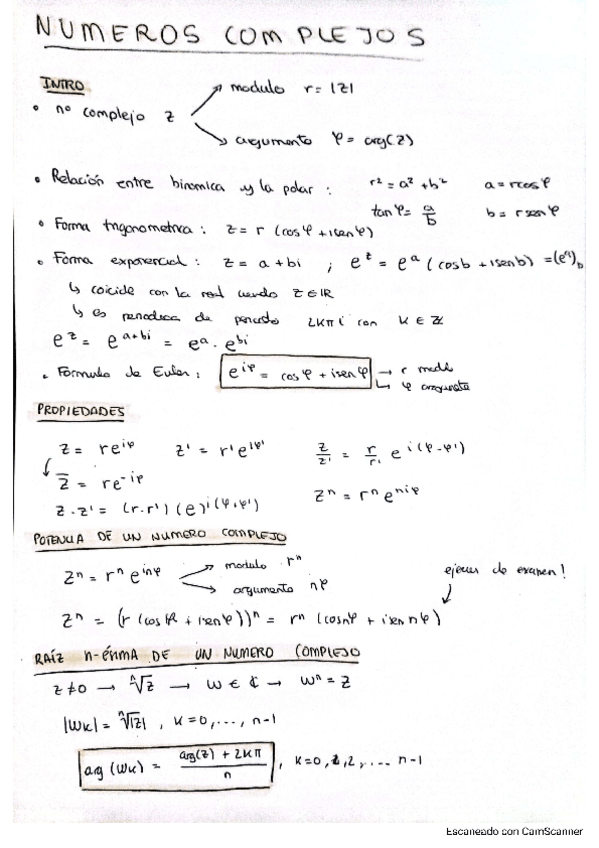 NUMEROS COMPLEJOS
INTRO
• nº complejo z → modulo r = |z|
→ argumento φ = arg(z)
• Relación entre binomica y la polar : r² = a² + b² a = rcosφ
tanφ = a/b b = rsenφ
• Forma trigonometrica : z = r (cosφ + isenφ)
• Forma exponencial : z = a + bi ; e^z = e^a (cosb + isenb) = (e^a)_b
↳ coicide con la real cuando z ∈ ℝ
↳ es periodica de periodo 2kπi con k ∈ ℤ
e^z = e^(a+bi) = e^a · e^(bi)
• Formula de Euler : e^(iφ) = cosφ + isenφ → r
↳ φ
PROPIEDADES
z = re^(iφ) z' = r'e^(iφ') z/z' = r/r' e^(i(φ-φ'))
z̄ = re^(-iφ)
z · z' = (r·r') (e)^(i(φ+φ')) z^n = r^n e^(niφ)
POTENCIA DE UN NUMERO COMPLEJO
z^n = r^n e^(inφ) → modulo r^n
→ argumento nφ
de examen!
z^n = (r (cosφ + isenφ))^n = r^n (cosnφ + isen nφ)
RAÍZ n-ÉNMA DE UN NUMERO COMPLEJO
z ≠ 0 → ⁿ√z → w ∈ ℂ → w^n = z
|wk| = ⁿ√|z| , k = 0, ..., n-1
arg (wk) = (arg(z) + 2kπ)/n , k = 0, 1, 2, ... n-1
Escaneado con CamScanner